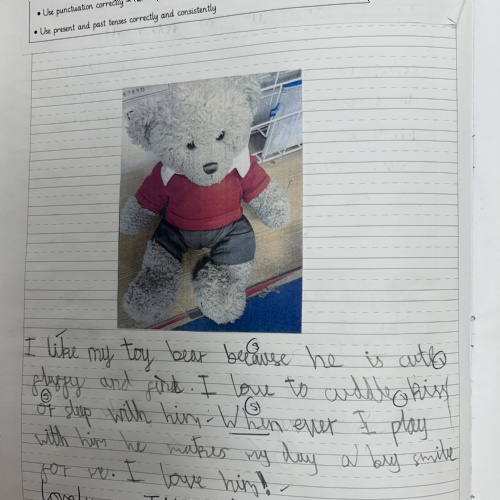 • Use punctuation correctly
• Use present and past tenses correctly and consistently
I like my toy bear because he is cute
fluffy and kind. I love to cuddle, kiss
or sleep with him. When ever I play
with him he makes my day a big smile
for me. I love him!